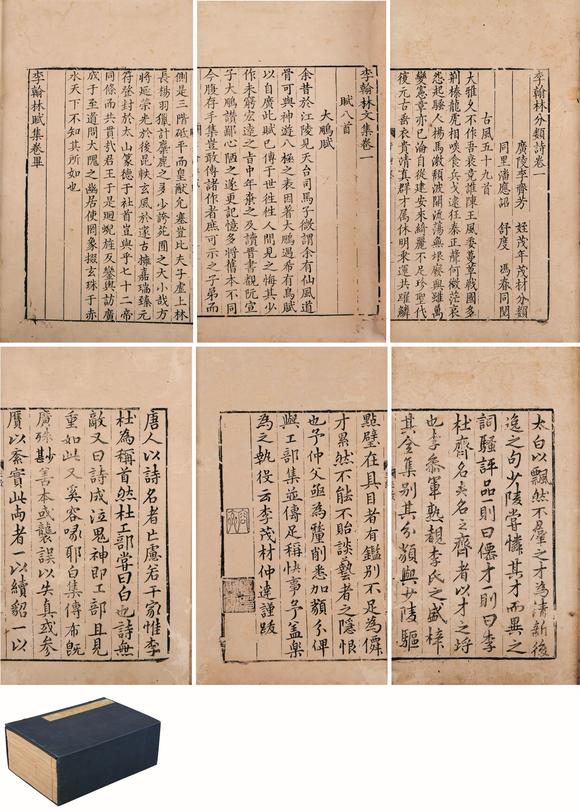 李翰林分類詩卷一
廣陵李齊芳 姪茂年茂材分類
同里潘應詔 舒度 馮春同閱
古風五十九首
大雅久不作吾衰竟誰陳王風委蔓草戰國多
荆榛龍虎相啖食兵戈逮狂秦正聲何微茫哀
怨起騷人揚馬激頹波開流蕩無垠廢興雖萬
變憲章亦已淪自從建安來綺麗不足珍聖代
復元古垂衣貴清真群才属休明乗運共躍鱗
李翰林文集卷一
賦八首
大鵬賦
余昔於江陵見天台司馬子微謂余有仙風道
骨可與神遊八極之表因著大鵬遇希有鳥賦
以自廣此賦已傳于世往往人間見之悔其少
作未窮宏達之旨中年棄之及讀晉書覩阮宣
子大鵬讃鄙心陋之遂更記憶多將舊本不同
今腹存手集豈敢傳諸作者庶可示之子弟而
側是三階砥平而皇猷允塞豈比夫子虛上林
長揚羽獵計麋鹿之多少誇苑囿之大小哉方
將延榮光於後昆軼玄風於邃古擁嘉瑞臻元
符登封於太山篆德于社首豈與乎七十二帝
同條而共貫哉君王于是迴蜺旌反鑾輿訪廣
成于至道問大隗之幽居使罔象掇玄珠于赤
水天下不知其所如也
李翰林賦集卷畢
太白以飄然不羣之才為清新後
逸之句少陵嘗憐其才而異之
詞騷評品則曰僊才則曰李
杜齊名夫名之齊者以才之埒
也李叅軍熟覩李氏之盛梓
其全集別其分類與少陵驅
點璧在具目者有鑑別不足為儕
才累然不能不貽談藝者之隱恨
也予仲父亟為釐削悉加類分俾
與工部集並儔足稱快事予盖樂
為之執役云李茂材仲達謹跋
唐人以詩名者亡慮若干家惟李
杜為稱首然杜工部嘗曰白也詩無
敵又曰詩成泣鬼神即工部且見
重如此又奚容喙耶白集傳布既
廣殊尠善本或襲誤以失真或參
贋以紊實此兩者一以續貂一以